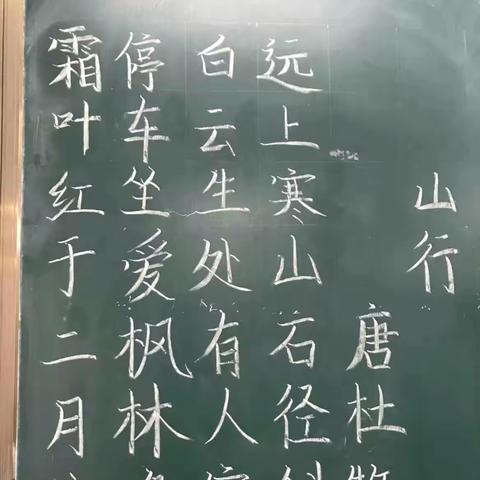 山行
唐杜牧
远上寒山石径斜
白云生处有人家
停车坐爱枫林
霜叶红于二月